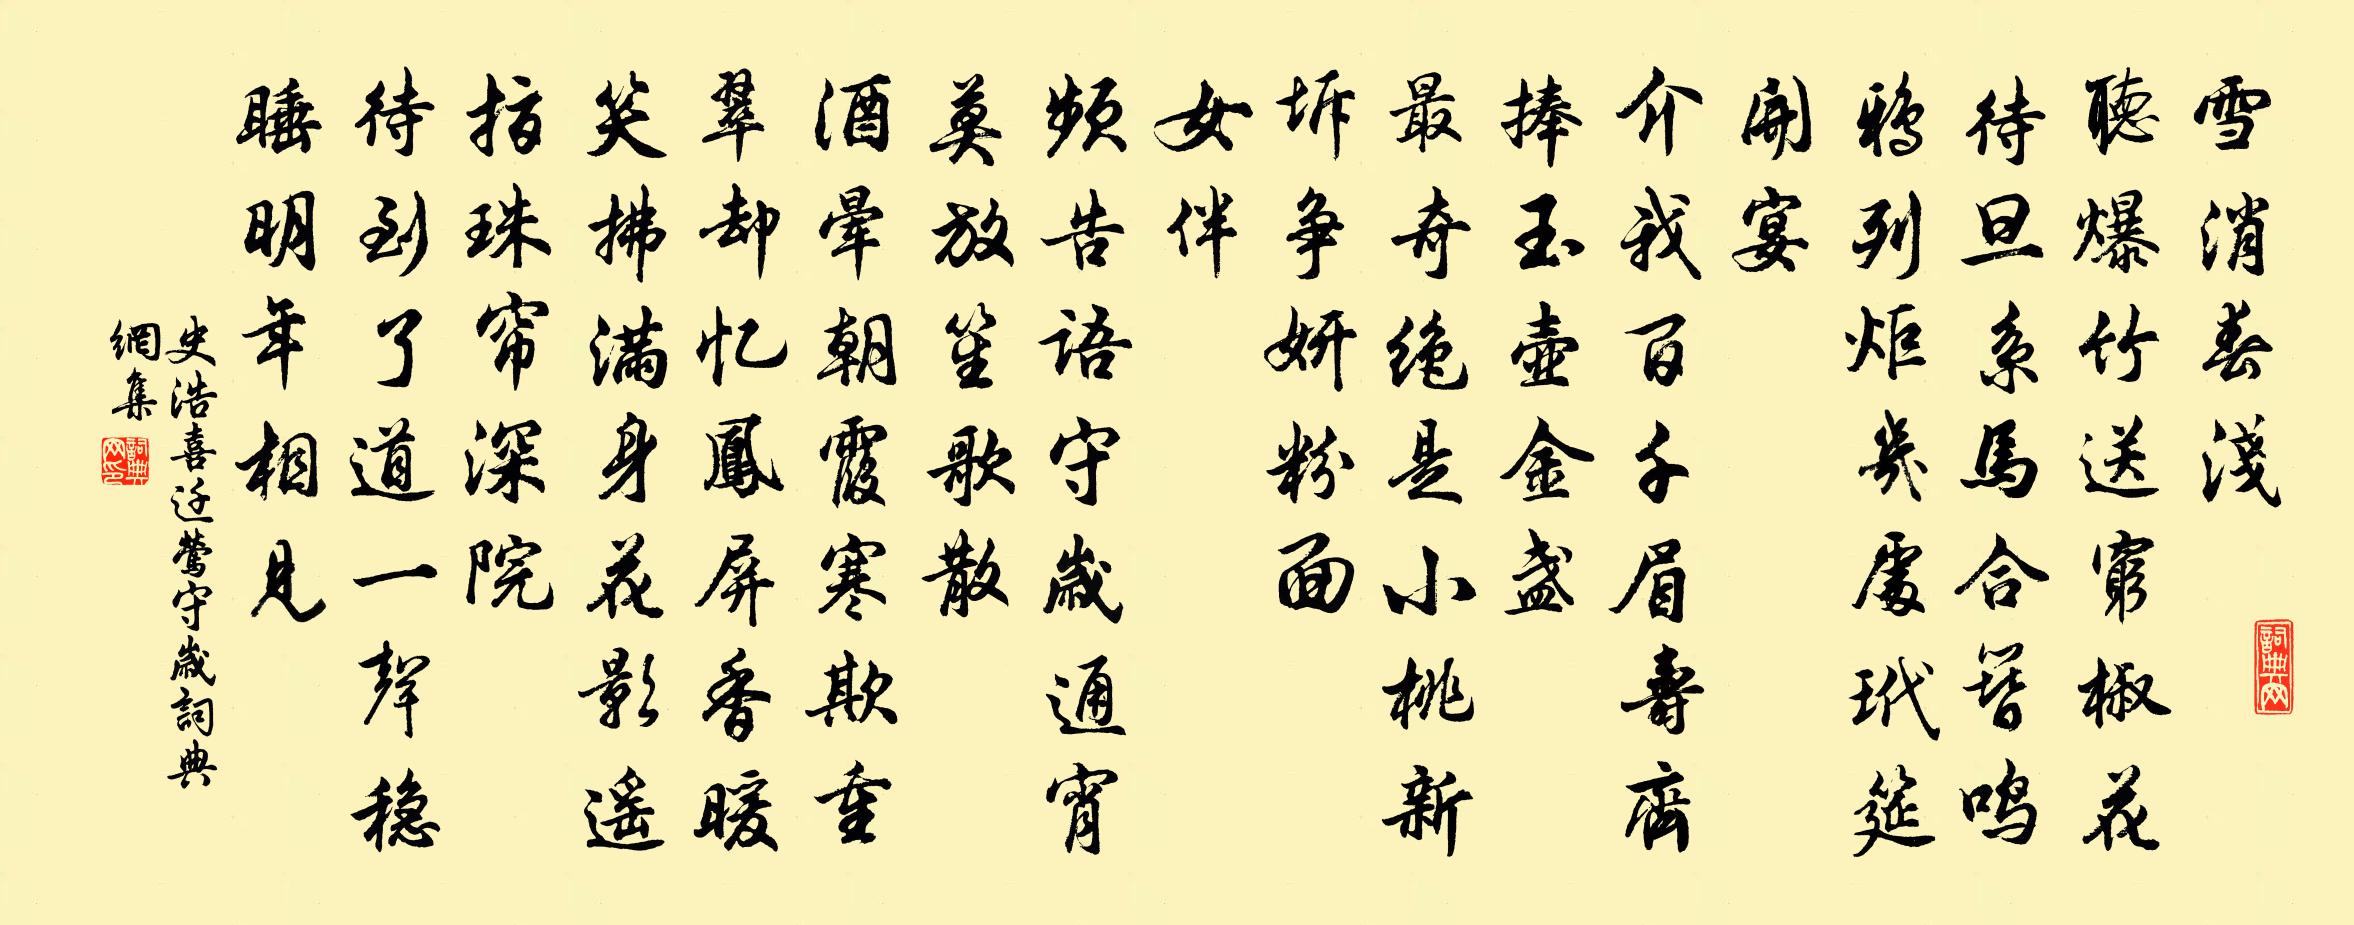 雪消春淺
聽爆竹送窮椒花
待旦系馬合簪鸣
鴉列炬幾處玳筵
開宴
介我百千眉壽齊
捧玉壺金盞
最奇绝是小桃新
坼争妍粉面
女伴
頻告語守歲通宵
莫放笙歌散
酒暈朝霞寒欺重
翠却忆鳳屏香暖
笑拂滿身花影遥
指珠帘深院
待到了道一聲稳
睡明年相見
史浩喜迁鶯守歲詞典
網集
詞典网
詞典网印